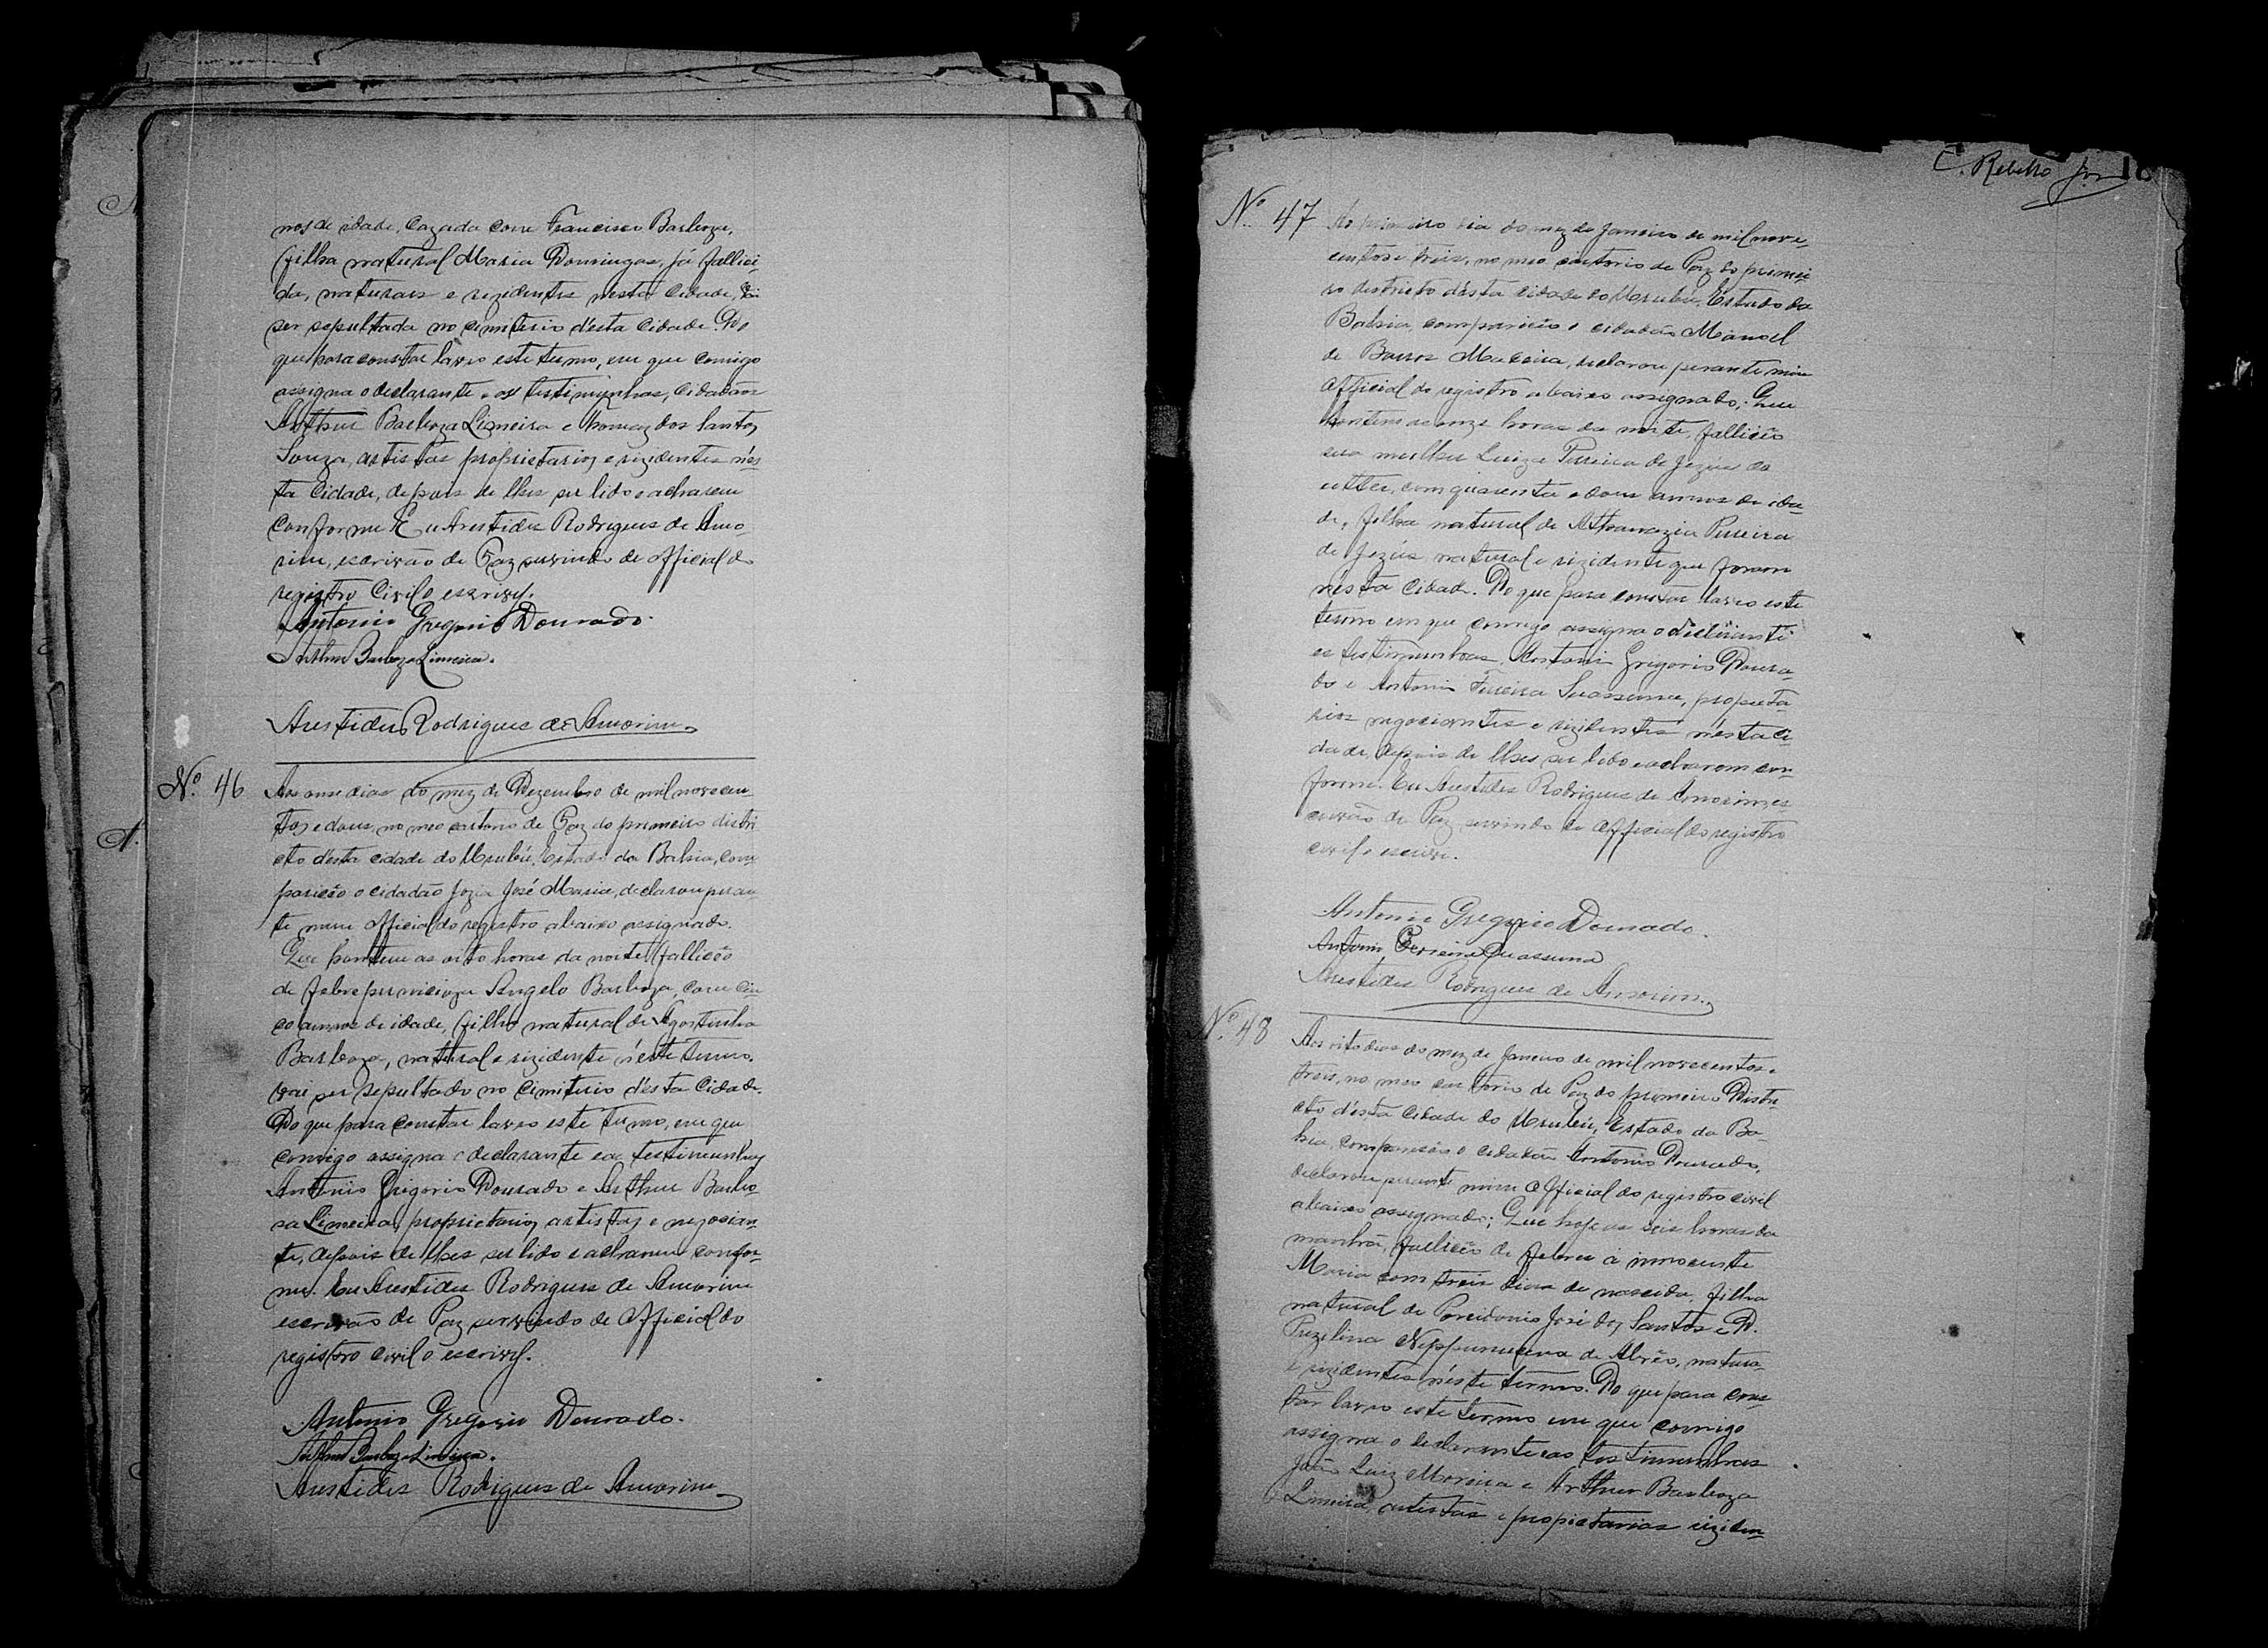 nos de idade, cazada com Francisco Barboza,
filha natural Maria Domingas, já falleci-
da, naturais e rezidentes nesta Cidade, vai
ser sepultada no cimiterio désta Cidade. Do
que para constar lavro este termo, em que comigo
assigna o declarante e as testimunhas, Cidadãos
Arthur Barboza Limeira e Thomaz dos Santos
Souza, artistas proprietarios e rezidentes nés-
ta Cidade, depois de lhes ser lido e acharem
conforme. Eu Arestides Rodrigues de Amo-
rim, escrivão de Paz servindo de official do
registro Civil o escrivy.
Antonio Gregorio Dourado.
Arthur Barboza Limeira.
Arestides Rodrigues de Amorim
Nº 46
Aos onse dias do mez de Dezembro de mil novecen-
tos e dous, no meo cartorio de Paz do primeiro distri-
cto désta cidade do Urubú, Estado da Bahia, com-
pariceo o cidadão José Maria, declarou peran-
te mim official do registro abaixo assignado.
Que hontem as oito horas da noite, falliceo
de febre Angelo Barboza, com cin-
co annos de idade, filho natural de Agostinha
Barboza, natural e rizidente néste termo.
vai ser sepultado no Cimiterio désta Cidade.
Do que para constar lavro este termo, em que
comigo assigna o declarante e as testimunhas
Antonio Grigorio Dourado e Arthur Barbo-
sa Limeira, proprietarios, artistas e negocian-
te, depois de lhes ser lido e acharem confor-
me. Eu Arestides Rodrigues de Amorim
escrivão de Paz servindo de Official do
registro civil o escrivy.
Antonio Gregorio Dourado.
Arthur Barboza Limeira.
Arestides Rodrigues de Amorim
C. Rebello Jor 18
Nº 47
Ao primeiro dia do mez de Janeiro de mil nove-
centos e treis, no meo cartorio de Paz do primei-
ro destricto désta cidade do Urubú, Estado da
Bahia, compariceo o cidadão Manoel
de Barros Maceira, declarou perante mim
Official do registro abaixo assignado; Que
hontem as onze horas da noite, falliceo
sua mulher Luiza Pereira de Jezus de
com quarenta e dous annos de ida-
de, filha natural de Athanazia Pereira
de Jezús natural e rizidente que foram
nésta Cidade. Do que para constar lavro este
termo em que comigo assigna o declarante
as testimunhas, Antonio Grigorio Doura-
do e Antonio Ferreira Suassuna, proprieta-
rios negociantes e rizidentes nésta ci-
dade, depois de lhes ser lido e acharem con-
forme. Eu Arestides Rodrigues de Amorim, es-
crivão de Paz servindo de Official do registro
civil o escrivi.
Antonio Gregorio Dourado.
Antonio Ferreira Suassuna
Arestides Rodrigues de Amorim
Nº 48
Aos oito dias do mez de Janeiro de mil novecentos e
treis, no meo cartorio de Paz do primeiro Distri-
cto désta Cidade do Urubú, Estado da Ba-
hia, compariceo o cidadão Antonio Dourado,
declarou perante mim Official do registro civil
abaixo assignado; Que hoje as seis horas da
manhã, falliceo de febres a innocente
Maria com treis dias de nascida, filha
natural de Porcidonio José dos Santos e D.
Puzilina Neppumucena de Abrêo, natura-
e rizidentes néste termo. Do que para cons-
tar lavro este termo em que comigo
assigna o declarante e as testimunhas
João Luiz Moreira e Arthur Barboza
Limeira, artistas e propietarios rizidin-